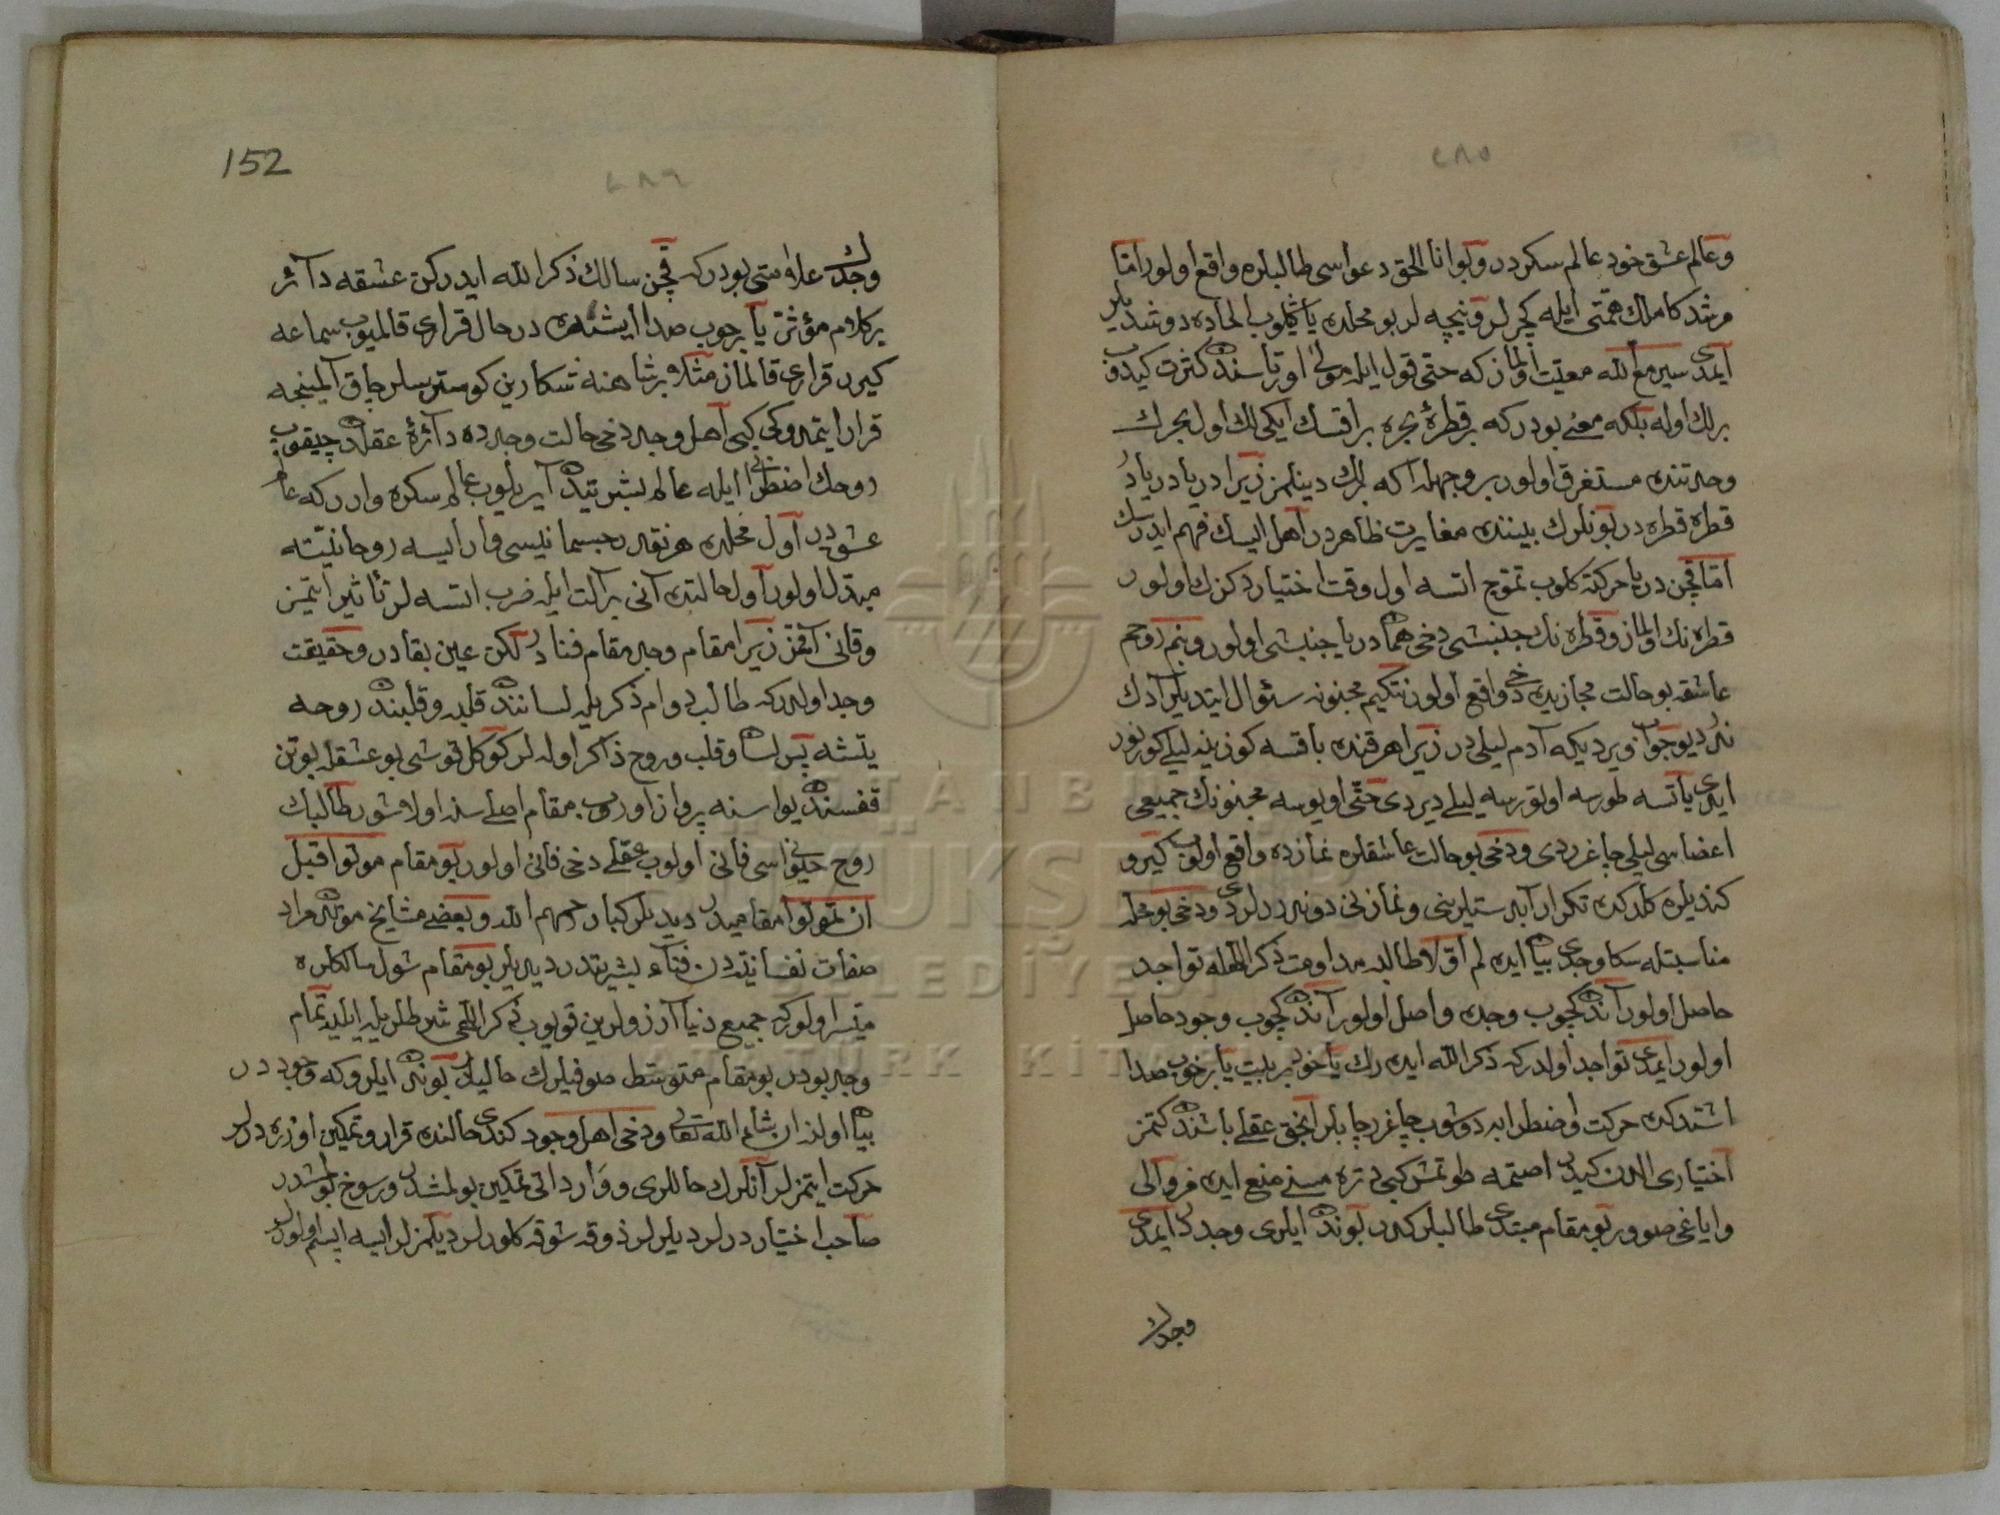 ٢٨٥
وعالم عشق خود عالم سكردر وبو انا الحق دعواسى طالبلره واقع اولور اما
مرشد كاملك همّتى ايله كچرلر ونيچه لر بو محلده ياكلوب الحاده دوشديلر
ايمدى سير مع الله معيّت اولماز كه حتى قول ايله مولى اورتاسنده كثرت كيدوب
برلك اوله بلكه معنى بودركه بر قطره بحره براقسك ايكيلك اول بحرك
وحدتنده مستغرق اولور بر وجهله اكه برلك دينلمز زيرا دريا دريادر
قطره قطره در بونلرك بيننده مغايرت ظاهردر اهل ايسك فهم ايدرسك
امّا قچن دريا حركته كلوب تموّج اتسه اول وقت اختيار دكزك اولور
قطره نك اولماز وقطره نك جنبشى دخى هما دريا جنبشى اولور وبنم روحم
عاشقه بو حالت مجازيده دخى واقع اولور نتكيم مجنونه سئوال ايتديلر آدك
ندر ديو جواب ويرديكه آدم ليلى در زيرا هر قنده باقسه كوزينه ليلى كورنور
ايدى ياتسه طورسه اوتورسه ليلى ديردى حتّى اويوسه مجنونك جميعى
اعضاسى ليلى چاغرردى ودخى بو حالت عاشقلره نمازده واقع اولوب كيرو
كنديلره كلدكده تكرار آبدستلرينى ونمازنى دونه ررلردى ودخى بو محله
مناسبتله سكا وجدى بيان ايده لم اوّلا طالبه مداومت ذكر اللهله تواجد
حاصل اولور آندن كچوب وجده واصل اولور آندن كچوب وجود حاصل
اولور ايمدى تواجد اولدركه ذكر الله ايده رك ياخود بر بيت يا بر خوب صدا
اشتدكده حركت واضطرابه دوشوب چاغرر چابلر انجق عقلى باشندن كتمز
اختيارى الدن كيدر اصتمه طوتمش كبى دتره مسنى منع ايده مز والى
واياغى صوور بو مقام مبتدى طالبلركدر بوندن ايلرى وجددر ايمدى
وجدك
152
٢٨٦
وجدك علامتى بودركه قچن سالك ذكر الله ايدركن عشقه دائر
بر كلام مؤثر يا بر خوب صدا ايشتده در حال قرارى قالميوب سماعه
كيرر قرارى قالماز مثلا بر شاهنه شكارين كوسترسلر چاق آلينجه
قرار ايتمدوكى كبى اهل وجد دخى حالت وجدده دائرۀ عقلدن چيقوب
روحك اضطرابى ايله عالم بشريتدن آيريلوب عالم سكره وارركه عالم
عشقدر اول محلده هر نقدر جسمانيسى وار ايسه روحانيته
مبدّل اولور اول حالتده آنى بر آلت ايله ضرب اتسه لر تأثير ايتمز
وقانى آقمز زيرا مقام وجد مقام فنادر لكن عين بقادر وحقيقت
وجد اولدركه طالب دوام ذكريله لساننده قلبه وقلبندن روحه
يتشه پس لسان وقلب وروح ذاكر اوله لر كوكل قوشى بو عشقله بو تن
قفسندن يواسنه پرواز اوروب مقام اصليسنه اولاشور طالبك
روح حيوانى سى فانى اولوب عقلى دخى فانى اولور بو مقام موتوا قبل
ان تموتوا مقاميدر ديديلر كبار رحمهم الله وبعضى مشايخ موتدن مراد
صفات نفسانيّه دن فناء بشريتدر ديديلر بو مقام شول سالكلره
ميسّر اولوركه جميع دنيا آرزولرين قويوب ذكر اللهى شرطلريله ايليه تمام
وجد بودر بو مقام متوسّط صوفيلرك حاليدر بوندن ايلروكه وجوددر
بيان اولنر ان شاء الله تعالى ودخى اهل وجود كندى حالنده قرار وتمكين اوزره درلر
حركت ايتمزلر آنلرك حاللرى وواردانى تمكين بولمشدر ورسوخ بولمشدر
صاحب اختياردرلر ديلرلر ذوقه شوقه كلورلر ديلمزلر ايسه ابسم اولورلر